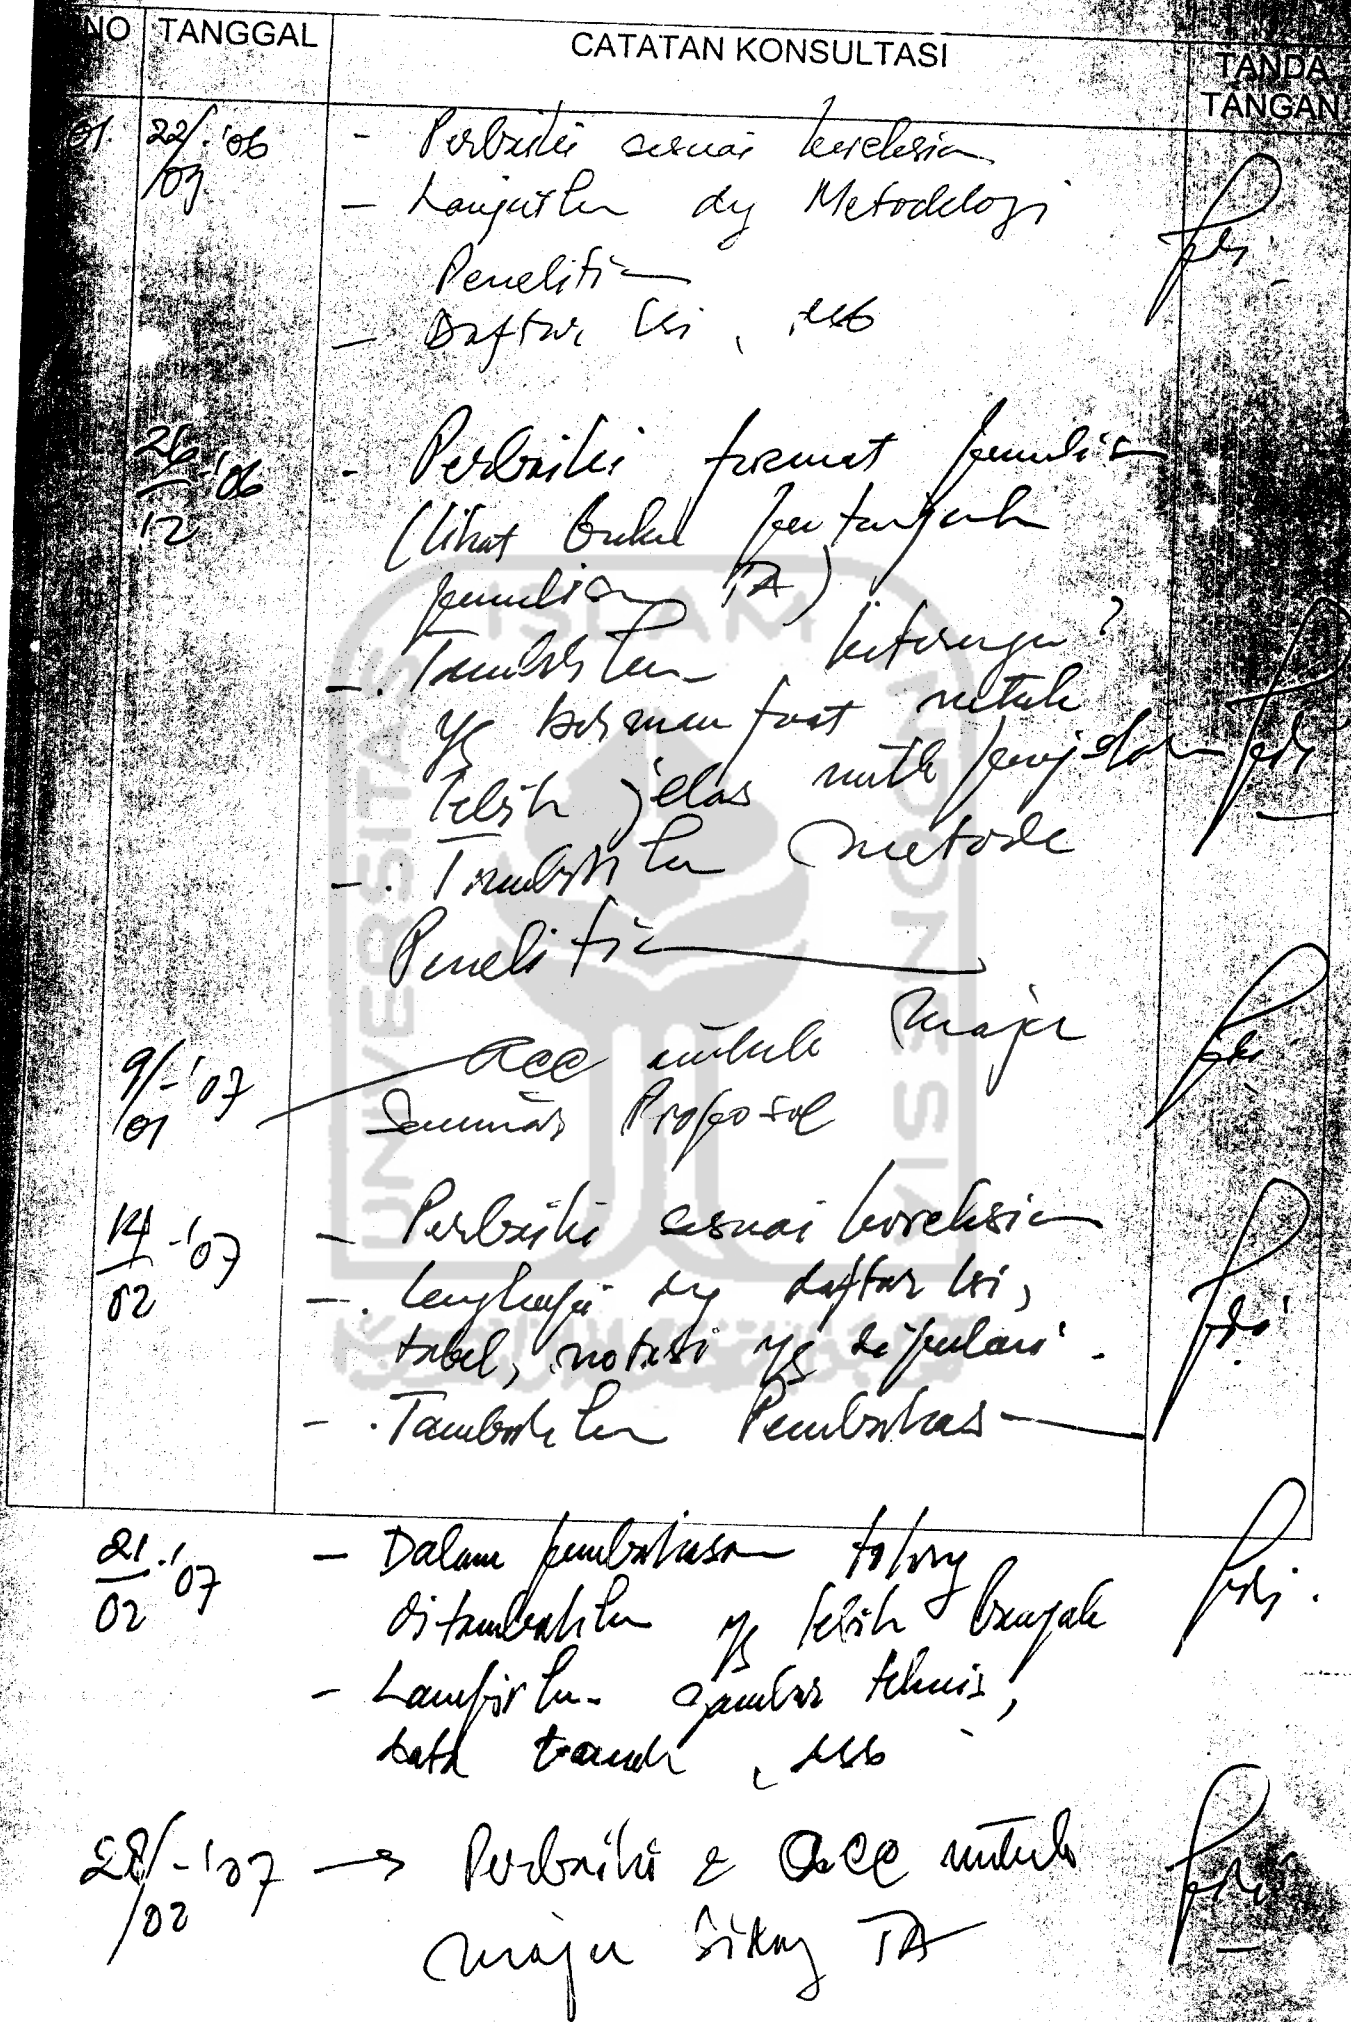 NO TANGGAL CATATAN KONSULTASI TANDA TANGAN
01. 22/09-'06 - Perbaiki sesuai koreksian
- Lanjutkan dg Metodologi
Penelitian
- Daftar Isi, dsb
26/12-'06 - Perbaiki format penulisan
(lihat buku petunjuk
penulisan TA)
- Tambahkan keterangan2
yg bermanfaat untuk
lebih jelas untk penjelasan
- Tambahkan metode
Penelitian
9/01-'07 acc untuk maju
Seminar Proposal
14/02-'07 - Perbaiki sesuai koreksian
- Lengkapi dg daftar Isi,
tabel, notasi yg dipakai.
- Tambahkan Pembahasan
21/02-'07 - Dalam pembahasan tolong
ditambahkan yg lebih banyak
- Lampirkan gambar teknis,
data tanah, dsb
28/02-'07 → Perbaiki & acc untuk
maju sidang TA
UNIVERSITAS
ISLAM
INDONESIA